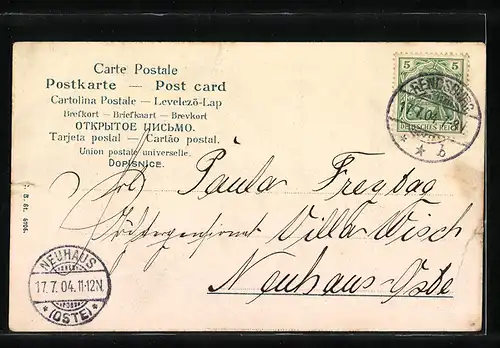 Carte Postale
Postkarte — Post card
Cartolina Postale — Levelező-Lap
Brefkort — Briefkaart — Brevkort
ОТКРЫТОЕ ПИСЬМО.
Tarjeta postal — Cartão postal.
Union postale universelle.
Dopisnice.
5 5
DEUTSCHES REICH
7.04
* * b
Paula Freytag
Villa Wisch
Neuhaus-Oste
NEUHAUS
17.7.04.11-12N.
*(OSTE)*